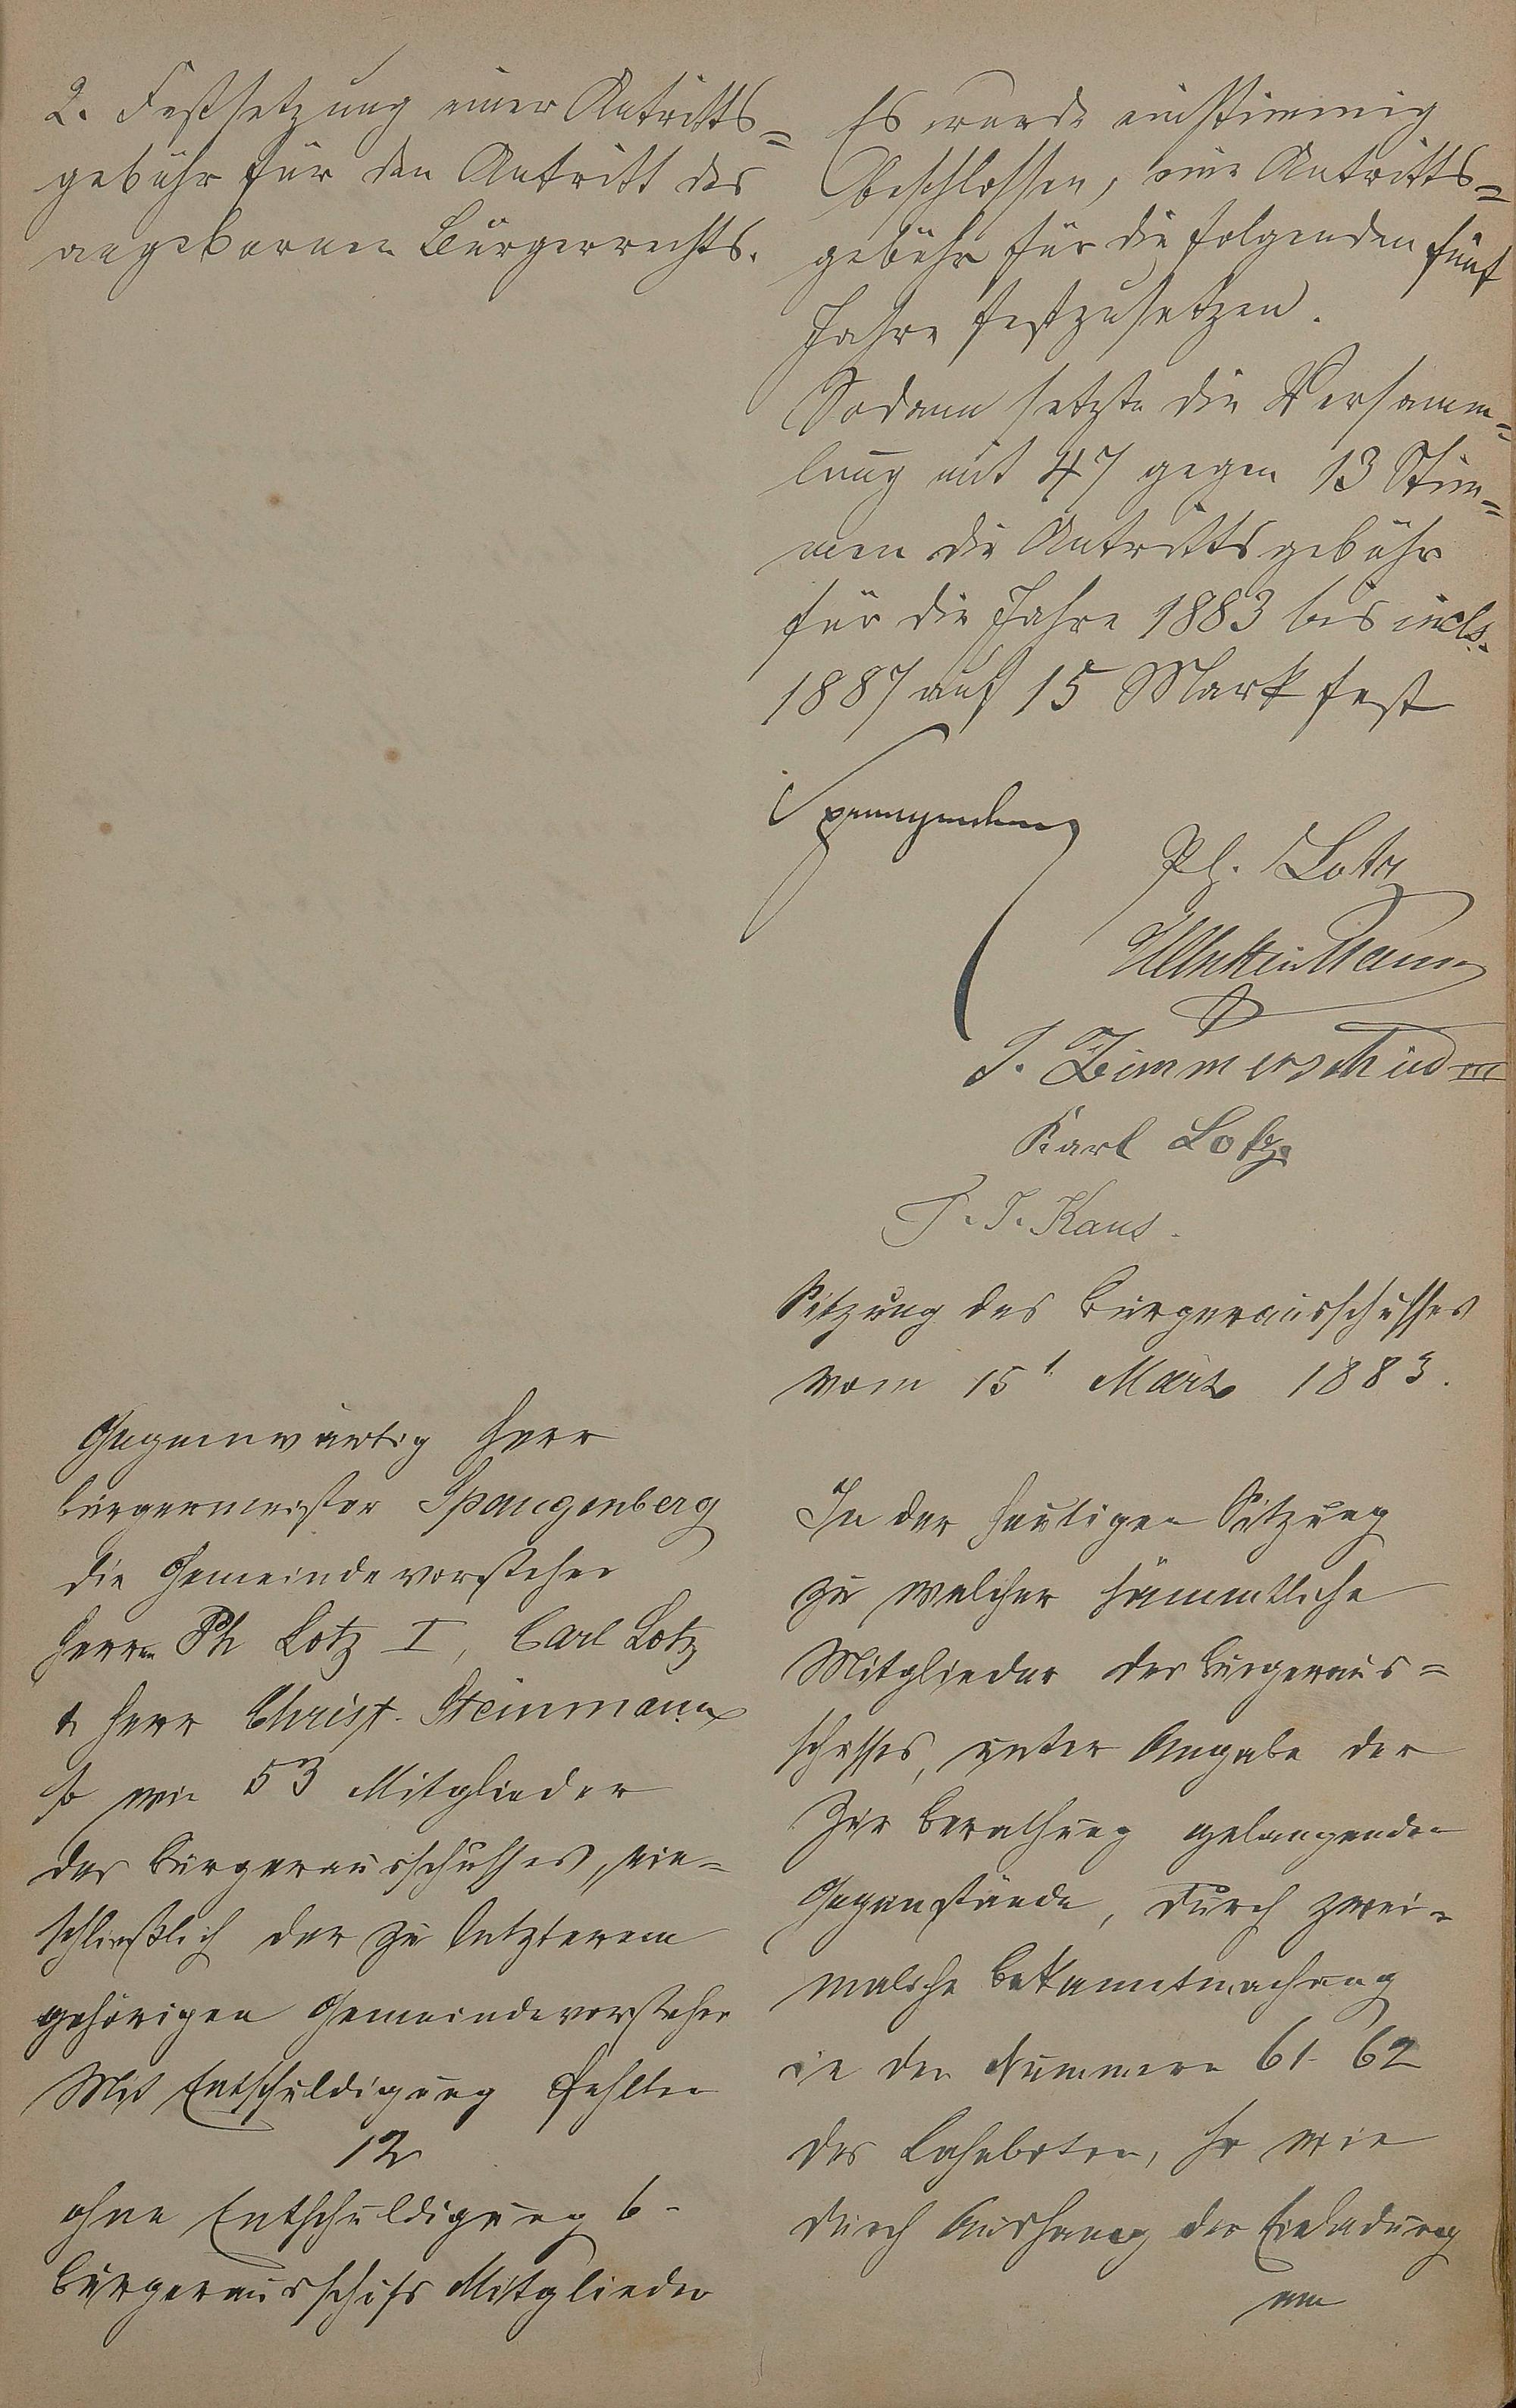 2. Festsetzung einer Antritts=
gebühr für den Antritt des
angeborenen Bürgerrechts.
Es wurde einstimmig
beschlossen, eine Antritts=
gebühr für die folgenden fünf
Jahre festzusetzen.
Sodann setzte die Versamm=
lung mit 47 gegen 13 Stim=
men die Antrittsgebühr
für die Jahre 1883 bis incls.
1887 auf 15 Mark fest
Spangenberg
Ph. Lotz
Steinmann
J. Zimmerschied III
Karl Lotz.
J. J. Kaus.
Sitzung des Bürgerausschusses
vom 15t. März 1883.
Gegenwärtig Herr
Bürgermeister Spangenberg
die Gemeindevorsteher
Herrn Ph Lotz I, Carl Lotz
& Herr Christ. Steinmann
so wie 53 Mitglieder
des Bürgerausschusses, ein=
schließlich der zu letzterem
gehörigen Gemeindevorsteher
Mit Entschuldigung fehlten
12
ohne Entschuldigung 6-
Bürgerausschuss Mitglieder
In der heutigen Sitzung
zu welcher sämmtliche
Mitglieder des Bürgeraus=
schusses, unter Angabe der
zur Berathung gelangenden
Gegenstände, durch zwei-
malige Bekanntmachung
in den Nummern 61- 62
des Lahnboten, so wie
durch Aushang der Einladung
am